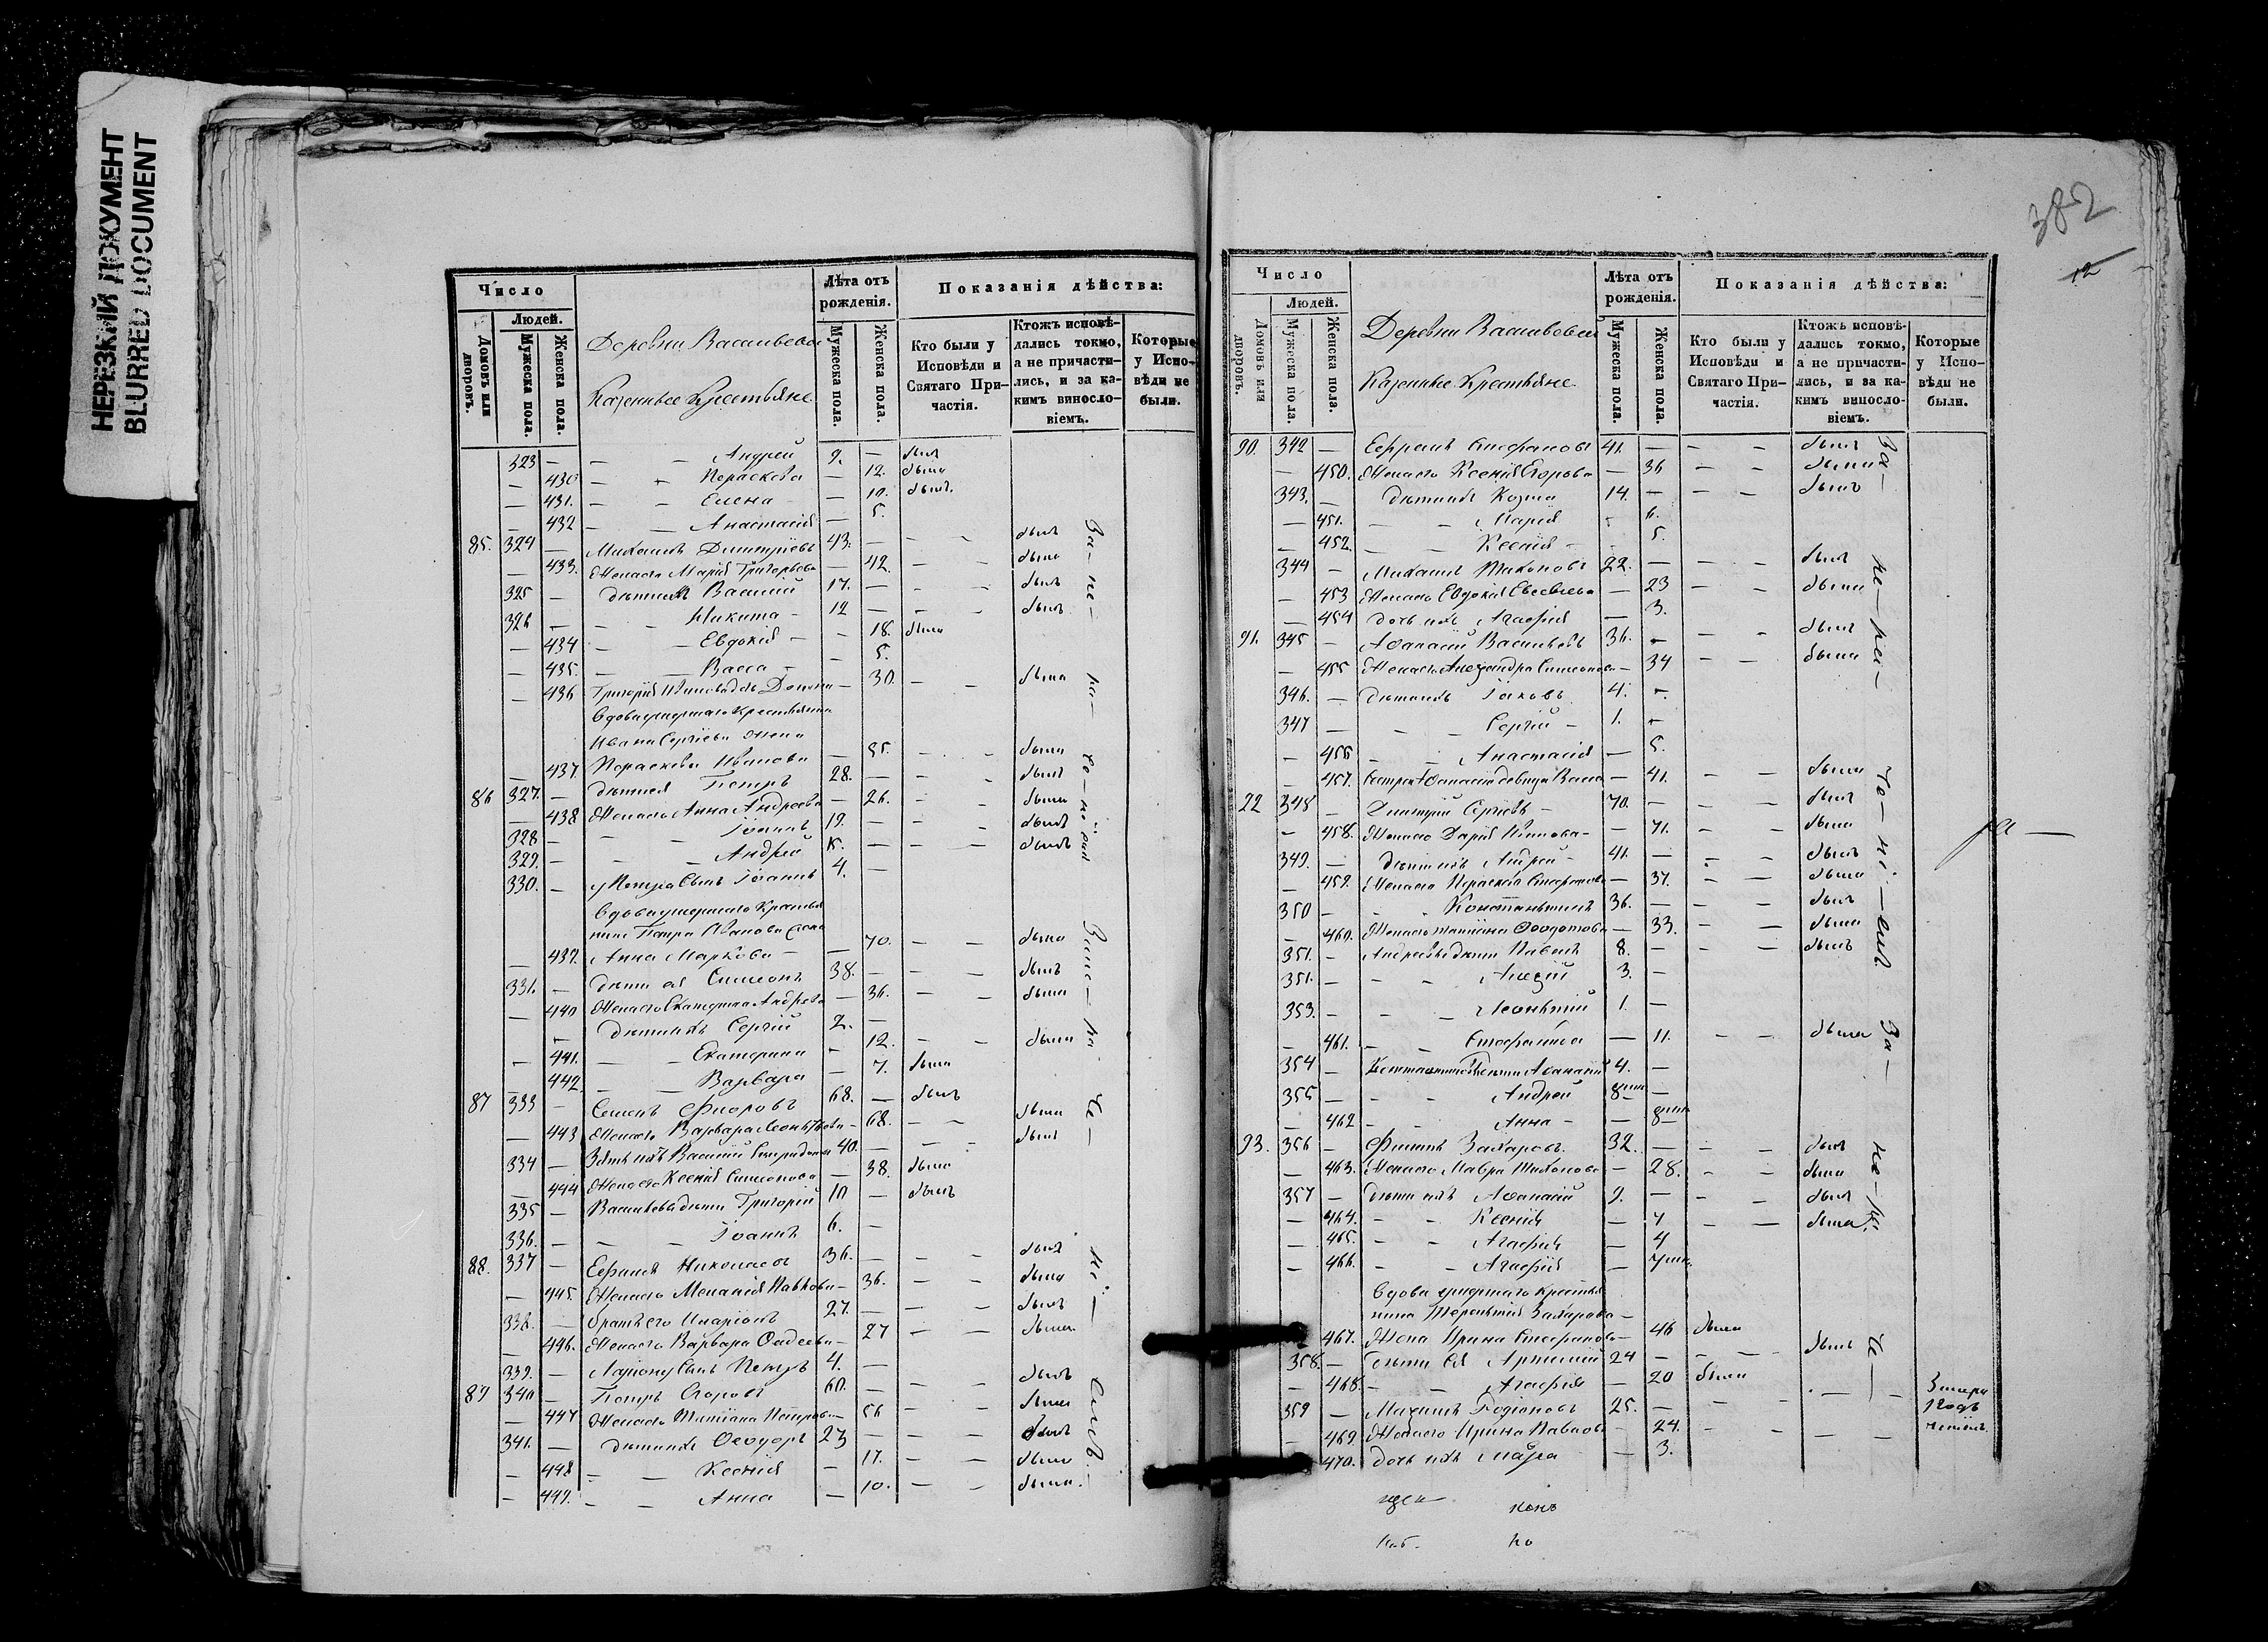 НЕРЕЗКИЙ ДОКУМЕНТ
BLURRED DOCUMENT
Число
Людей.
Домовъ или дворовъ.
Мужеска пола.
Женска пола.
Деревни
Казенные Крестьяне
Лѣта отъ рожденія.
Мужеска пола.
Женска пола.
Показанія дѣйства:
Кто были у Исповѣди и Святаго Причастія.
Ктожъ исповѣдались токмо, а не причастились, и за какимъ винословіемъ.
Которые у Исповѣди не были.
323 — — — Андрей 9. — былъ
— 430 — — Параскева — 12. была
— 431. — — Елена — 10. была.
— 432 — — Анастасія — 5.
85. 324 — Михаилъ Димитріевъ 43. — — — былъ
— 433. Жена его Марія Григорьева — 42. — — была
325 — дѣти ихъ Василій 17. — — — былъ
326 — — — Никита — 12 — — — былъ
— 434 — — Евдокія — — 18. была
— 435. — — Васса — — 5.
— 436 — 30. — — была
Вдова умершаго Крестьянина
Ивана Сергіева жена
— 437 Параскева Иванова — 55. — — была
86 327. — дѣти ея Петръ 28. — — — былъ
— 438 Жена его Анна Андреева — 26. — — была
328 — — — Іоаннъ 19. — — — былъ
329. — — — Андрей 15. — — — былъ
330. — у Петра сынъ Іоаннъ 4. —
Вдова умершаго Крестья
нина Петра Иванова жена
— 439. Анна Маркова — — 70. — — была
331. — дѣти ея Симеонъ 38. — — — былъ
— 440 Жена его Екатерина Андреева — 36. — — была
— дѣти ихъ Сергій 2. —
— 441. — — Екатерина — 12. — — была
— 442. — — Варвара — 7. была
87 333 — Семенъ Ѳедоровъ 68. — былъ
— 443 Жена его Варвара Леонтьева — 68. — — была
334 — Зять ихъ Василій Спиридоновъ 40. — — — былъ
— 444 Жена его Ксенія Симеонова — 38. была
335 — Васильевы дѣти Григорій 10 — былъ
336. — — — Іоаннъ 6. —
88. 337 — Ефимъ Николаевъ 36. — — — былъ
— 445. Жена его Меланія Павлова — 36. — — была
338. — братъ его Иларіонъ 27. — — — былъ
— 446. Жена его Варвара Фадеева — 27 — — была
339. — Ларіону сынъ Петръ 4. —
89 340 — Петръ Егоровъ 60. — — — былъ
— 447 Жена его Татіана Петрова — 56 — — была
341. — дѣти ихъ Ѳеодоръ 23 — — — былъ
— 448 — — Ксенія — 17. — — была
— 449. — — Анна — 10. — — была.
За-не-
382
12
Число
Людей.
Домовъ или дворовъ.
Мужеска пола.
Женска пола.
Деревни
Казенные Крестьяне
Лѣта отъ рожденія.
Мужеска пола.
Женска пола.
Показанія дѣйства:
Кто были у Исповѣди и Святаго Причастія.
Ктожъ исповѣдались токмо, а не причастились, и за какимъ винословіемъ.
Которые у Исповѣди не были.
90. 342 — Ефремъ Стефановъ 41. — — — былъ
— 450. Жена его Ксенія Егорова — 36 — — была
343. — дѣти ихъ Козма 14. — — — былъ
— 451. — — Марія — 6.
— 452. — — Ксенія — — 5.
344 — Михаилъ Тихоновъ 22. — — — былъ
— 453 Жена его Евдокія — 23 — — была
— 454 дочь ихъ Агафія — 3.
91. 345 — Аѳанасій Васильевъ 36. — — — былъ
— 455 Жена его Александра Симеонова — 34 — — была
346. — дѣти ихъ Іаковъ 4. —
347 — — — Сергій — 1. —
— 456 — — Анастасія — 5.
— 457. сестра Аѳанасія девица Васса — 41. — — была
92 348 — Димитрій Сергіевъ — 70. — — — былъ
— 458. Жена его Дарія — 71. — — была
349. — дѣти ихъ Андрей — 41. — — — былъ
— 459. Жена его Параскева Стефанова — 37. — — была
350 — — — Константинъ 36. — — — былъ
— 460. Жена его Татіана Ѳеодотова — 33. — — была
351. — Андреевы дѣти Павелъ 8. — — — былъ
351. — — — Алексій 3. —
353. — — — Леонтій 1. —
— 461. — — Стефанида — 11. — — была
354 — Константиновы дѣти Аѳанасій 4. —
355 — — — Андрей 8 —
— 462 — — Анна — — 8
93. 356 — Филипъ Захаровъ 32. — — — былъ
— 463. Жена его Мавра Тихонова — 28. — — была
357 — дѣти ихъ Аѳанасій 9. — — — былъ
— 464. — — Ксенія — 7 — — была.
— 465. — — Агафія — 4
— 466. — — Агафія — 7
Вдова умершаго Крестья
нина Терентія Захарова —
— 467. Жена Ирина Стефанова — 46 была
358. — дѣти ея Артемій 24 — — — былъ
— 468. — — Агафія — 20 была
359 — Максимъ Родіоновъ 25. — — —
— 469 Жена его Ирина Павлова — 24. — —
— 470. дочь ихъ Мавра — 3.